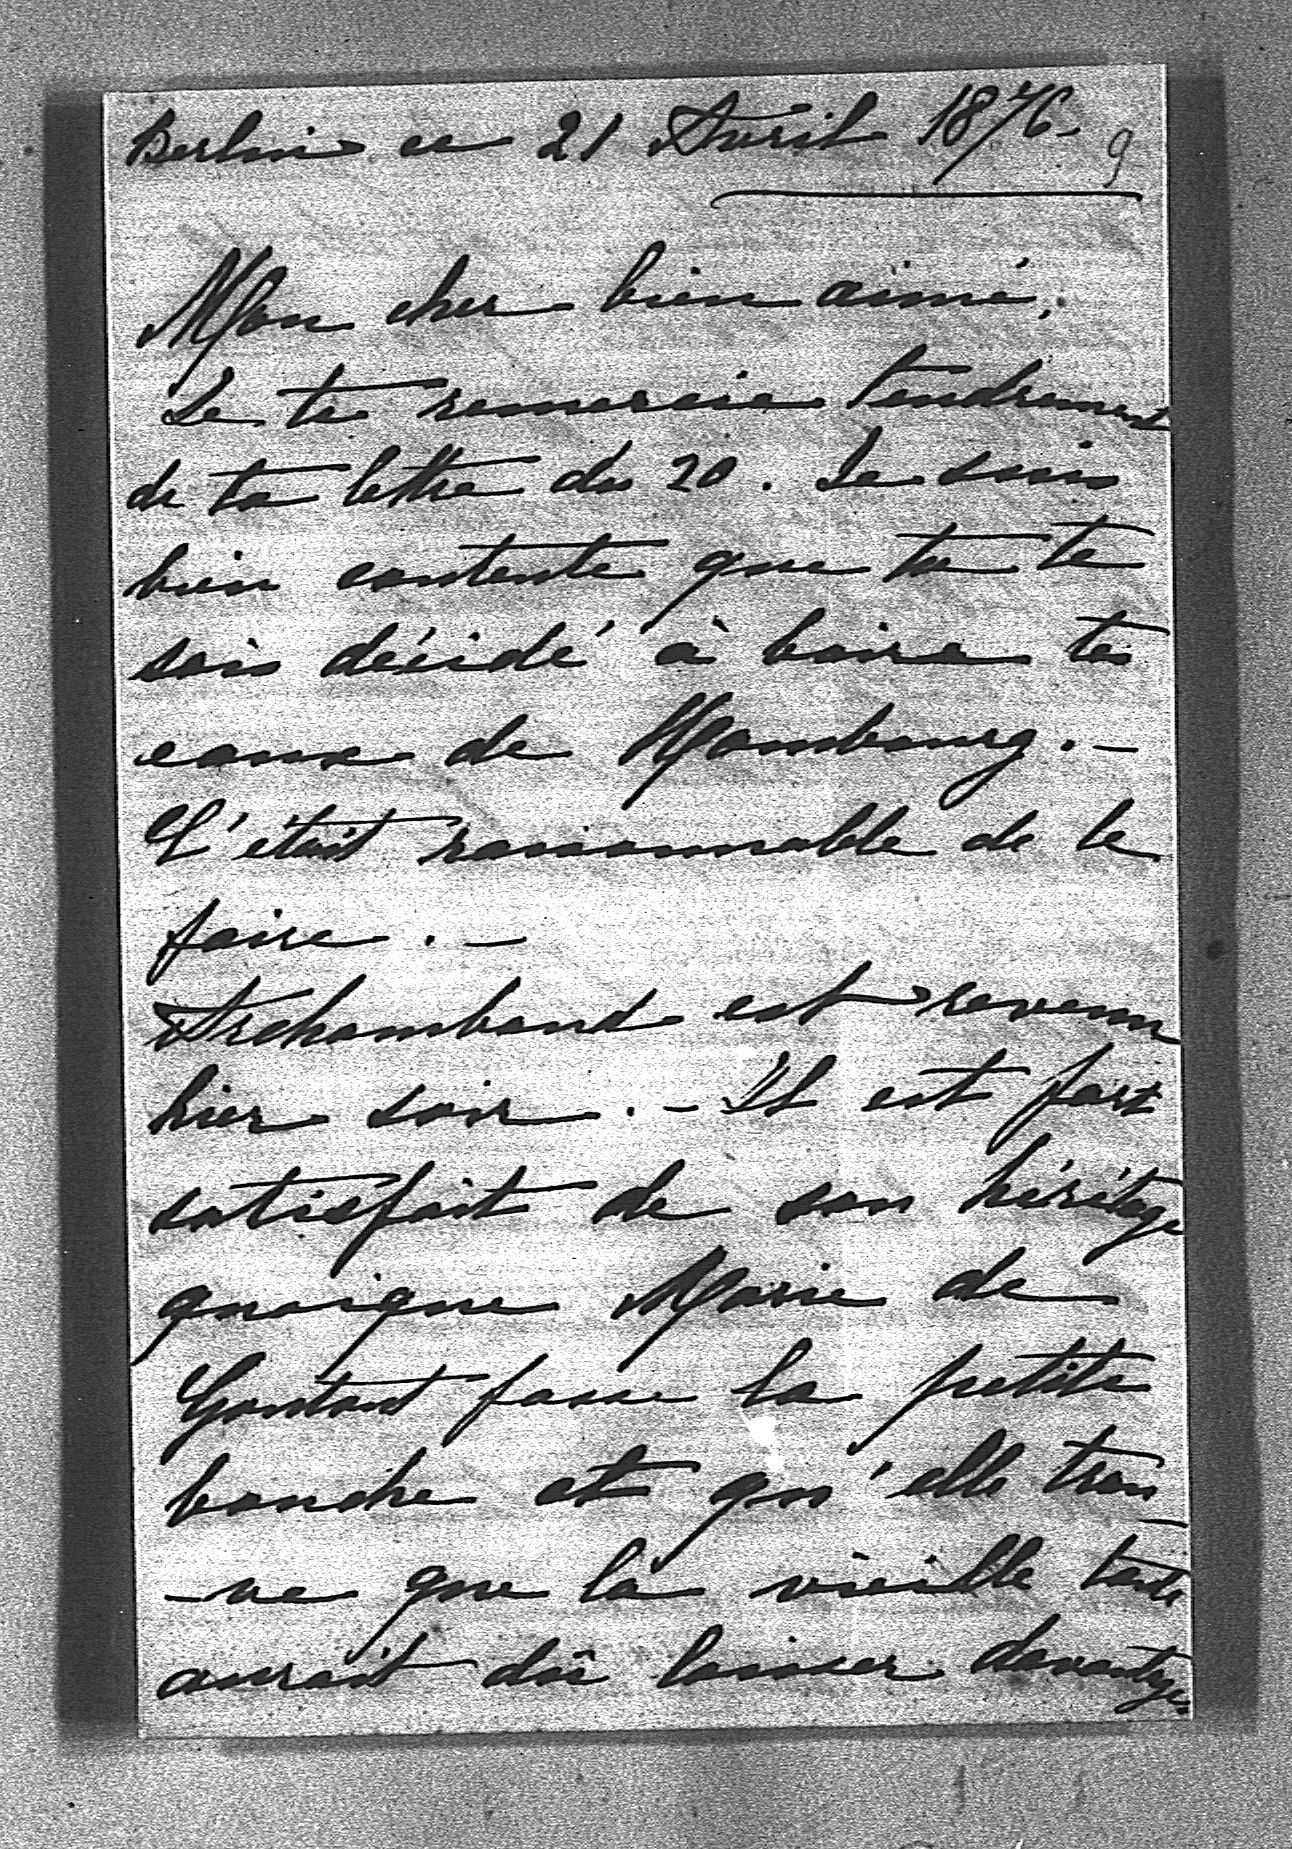 Berlin ce 21 Avril 1876.
9
Mon cher bien aimé,
Je te remercie tendrement
de ta lettre du 20. Je suis
bien contente que tu te
sois décidé à boire tes
eaux de Hombourg. —
C'était raisonnable de le
faire. —
Archambaud est revenu
hier soir. — Il est fort
satisfait de son héritage
quoique Marie de
Gontaut fasse la petite
bouche et qu'elle trou-
-ve que la vieille tante
aurait dû laisser davantage.